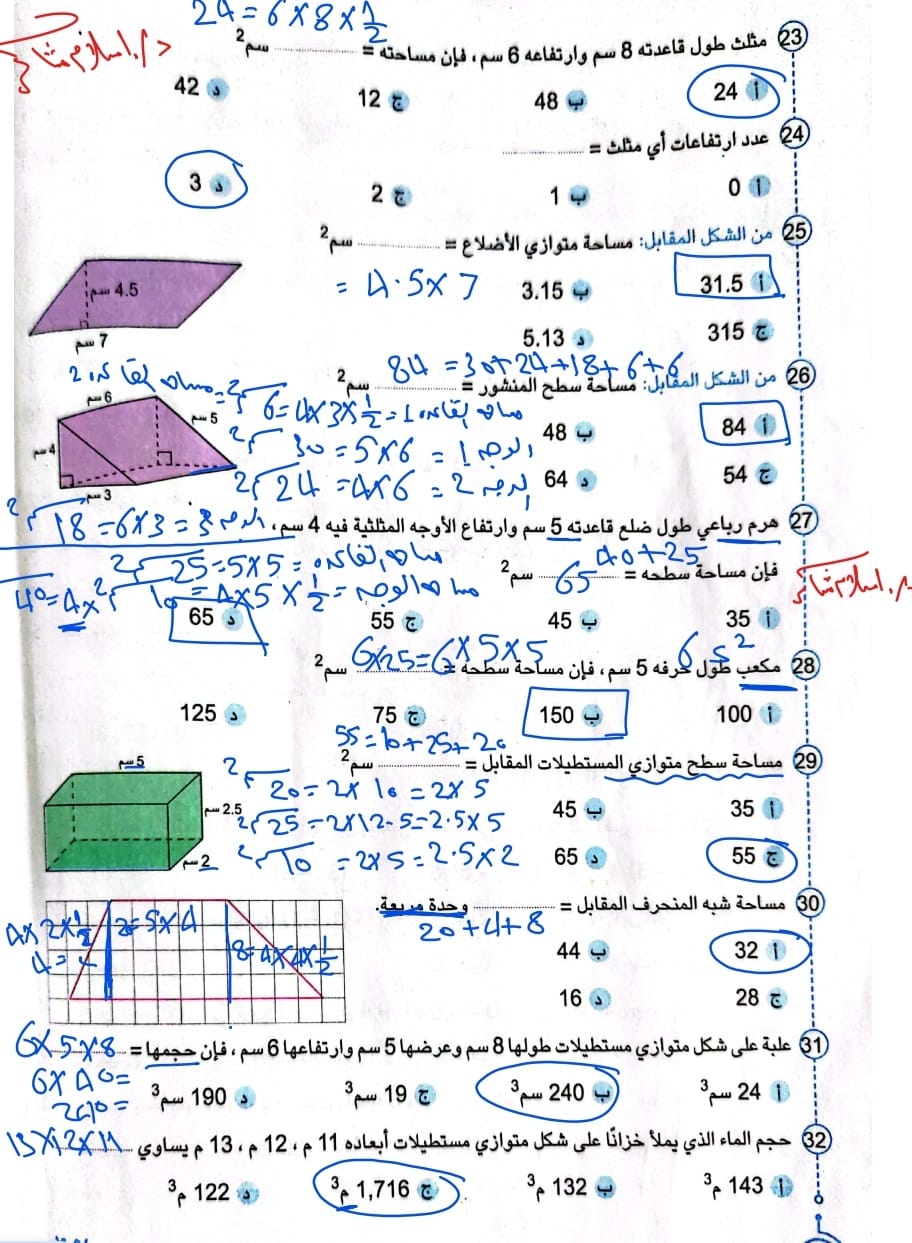 24 = 6 × 8 × 1/2
23 مثلث طول قاعدته 8 سم وارتفاعه 6 سم، فإن مساحته = .................... سم2
أ 24 ب 48 ج 12 د 42
24 عدد ارتفاعات أي مثلث = ....................
أ 0 ب 1 ج 2 د 3
25 من الشكل المقابل: مساحة متوازي الأضلاع = .................... سم2
4.5 سم
7 سم
= 4.5 × 7
أ 31.5 ب 3.15
ج 315 د 5.13
84 = 30 + 24 + 18 + 6 + 6
26 من الشكل المقابل: مساحة سطح المنشور = .................... سم2
6 سم
5 سم
4 سم
3 سم
6 = 4 × 3 × 1/2 =
أ 84 ب 48
30 = 5 × 6 = الوجه 1
ج 54 د 64
سم2 24 = 4 × 6 = الوجه 2
سم2 18 = 6 × 3 = الوجه 3
27 هرم رباعي طول ضلع قاعدته 5 سم وارتفاع الأوجه المثلثية فيه 4 سم،
سم2 25 = 5 × 5 = مساحة القاعدة
40 + 25
فإن مساحة سطحه = 65 سم2
40 = 4 × سم2 10 = 4 × 5 × 1/2 = مساحة الوجه
أ 35 ب 45 ج 55 د 65
6 × 25 = 6 × 5 × 5
6 s2
28 مكعب طول حرفه 5 سم، فإن مساحة سطحه = .................... سم2
أ 100 ب 150 ج 75 د 125
55 = 10 + 25 + 20
29 مساحة سطح متوازي المستطيلات المقابل = .................... سم2
5 سم
2.5 سم
2 سم
سم2 20 = 2 × 10 = 2 × 5
أ 35 ب 45
سم2 25 = 2 × 12.5 = 2.5 × 5
ج 55 د 65
سم2 10 = 2 × 5 = 2.5 × 2
30 مساحة شبه المنحرف المقابل = .................... وحدة مربعة.
20 + 4 + 8
4 × 2 × 1/2
4 =
20 = 5 × 4
8 = 4 × 4 × 1/2
أ 32 ب 44
ج 28 د 16
31 علبة على شكل متوازي مستطيلات طولها 8 سم وعرضها 5 سم وارتفاعها 6 سم، فإن حجمها = 6 × 5 × 8
6 × 40 =
240 =
أ 24 سم3 ب 240 سم3 ج 19 سم3 د 190 سم3
32 حجم الماء الذي يملأ خزانًا على شكل متوازي مستطيلات أبعاده 11 م، 12 م، 13 م يساوي 13 × 12 × 11
أ 143 م3 ب 132 م3 ج 1,716 م3 د 122 م3